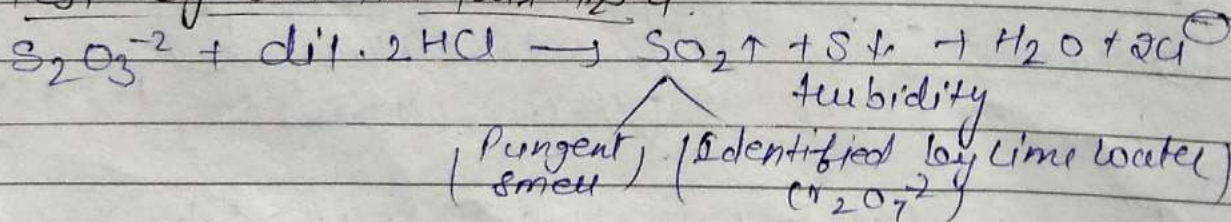 S₂O₃⁻² + dil. 2HCl → SO₂↑ + S↓ + H₂O + 2Cl⊖
turbidity
(Pungent smell) (Identified by lime water Cr₂O₇⁻²)